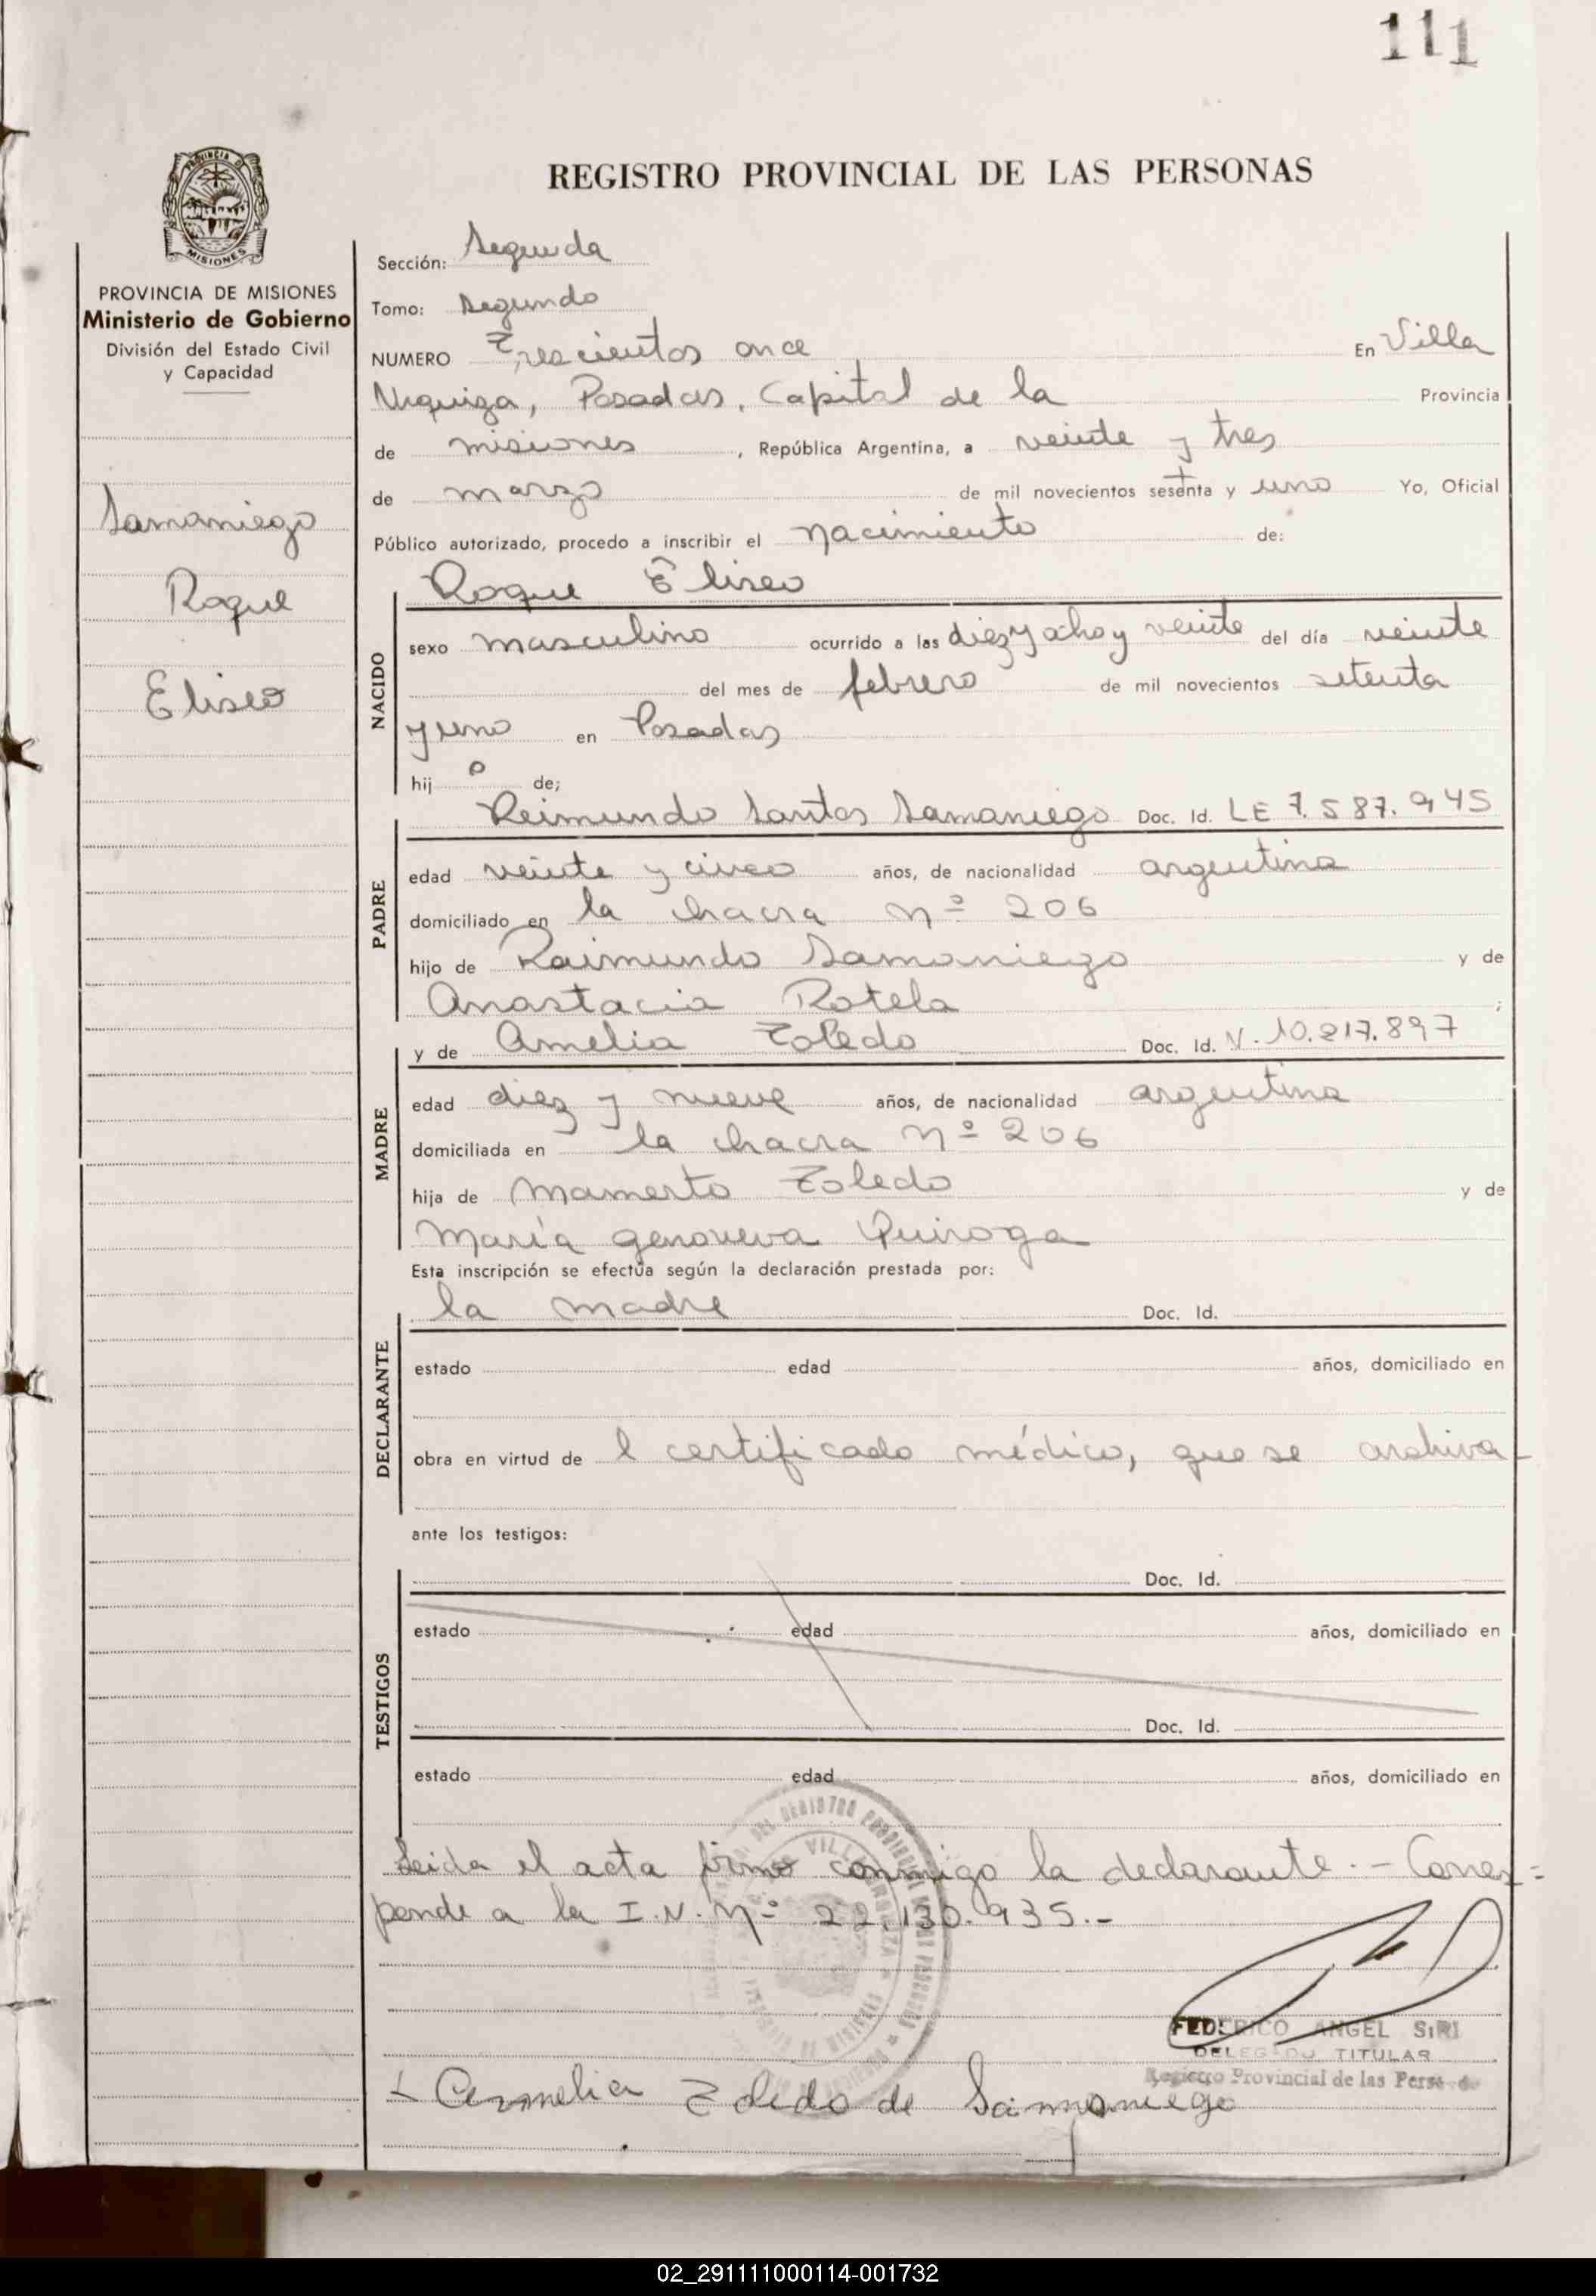 111
REGISTRO PROVINCIAL DE LAS PERSONAS
PROVINCIA DE MISIONES
MISIONES
PROVINCIA DE MISIONES
Ministerio de Gobierno
División del Estado Civil
y Capacidad
Samaniego
Roque
Eliseo
Sección: Segunda
Tomo: Segundo
NUMERO Trescientos once En Villa
Urquiza, Posadas, Capital de la Provincia
de misiones, República Argentina, a veinte y tres
de marzo de mil novecientos setenta y uno Yo, Oficial
Público autorizado, procedo a inscribir el nacimiento de:
Roque Eliseo
NACIDO
sexo masculino ocurrido a las diez y ocho y veinte del día veinte
del mes de febrero de mil novecientos setenta
y uno en Posadas
hijo de;
Reimundo Santos Samaniego Doc. Id. LE 7.587.945
PADRE
edad veinte y cinco años, de nacionalidad argentina
domiciliado en la chacra nº 206
hijo de Raimundo Samaniego y de
Anastacia Rotela;
y de Amelia Toledo Doc. Id. N. 10.217.897
MADRE
edad diez y nueve años, de nacionalidad argentina
domiciliada en la chacra nº 206
hija de Mamerto Toledo y de
María Genoveva Quiroga
Esta inscripción se efectúa según la declaración prestada por:
la madre Doc. Id.
DECLARANTE
estado edad años, domiciliado en
obra en virtud del certificado médico, que se archiva
ante los testigos:
Doc. Id.
TESTIGOS
estado edad años, domiciliado en
Doc. Id.
estado edad años, domiciliado en
Leida el acta firmo conmigo la declarante.- Corres=
ponde a la I.N. Nº 22.130.935.-
FEDERICO ANGEL SIRI
DELEGADO TITULAR
Registro Provincial de las Personas
Amelia Toledo de Samaniego
02_291111000114-001732